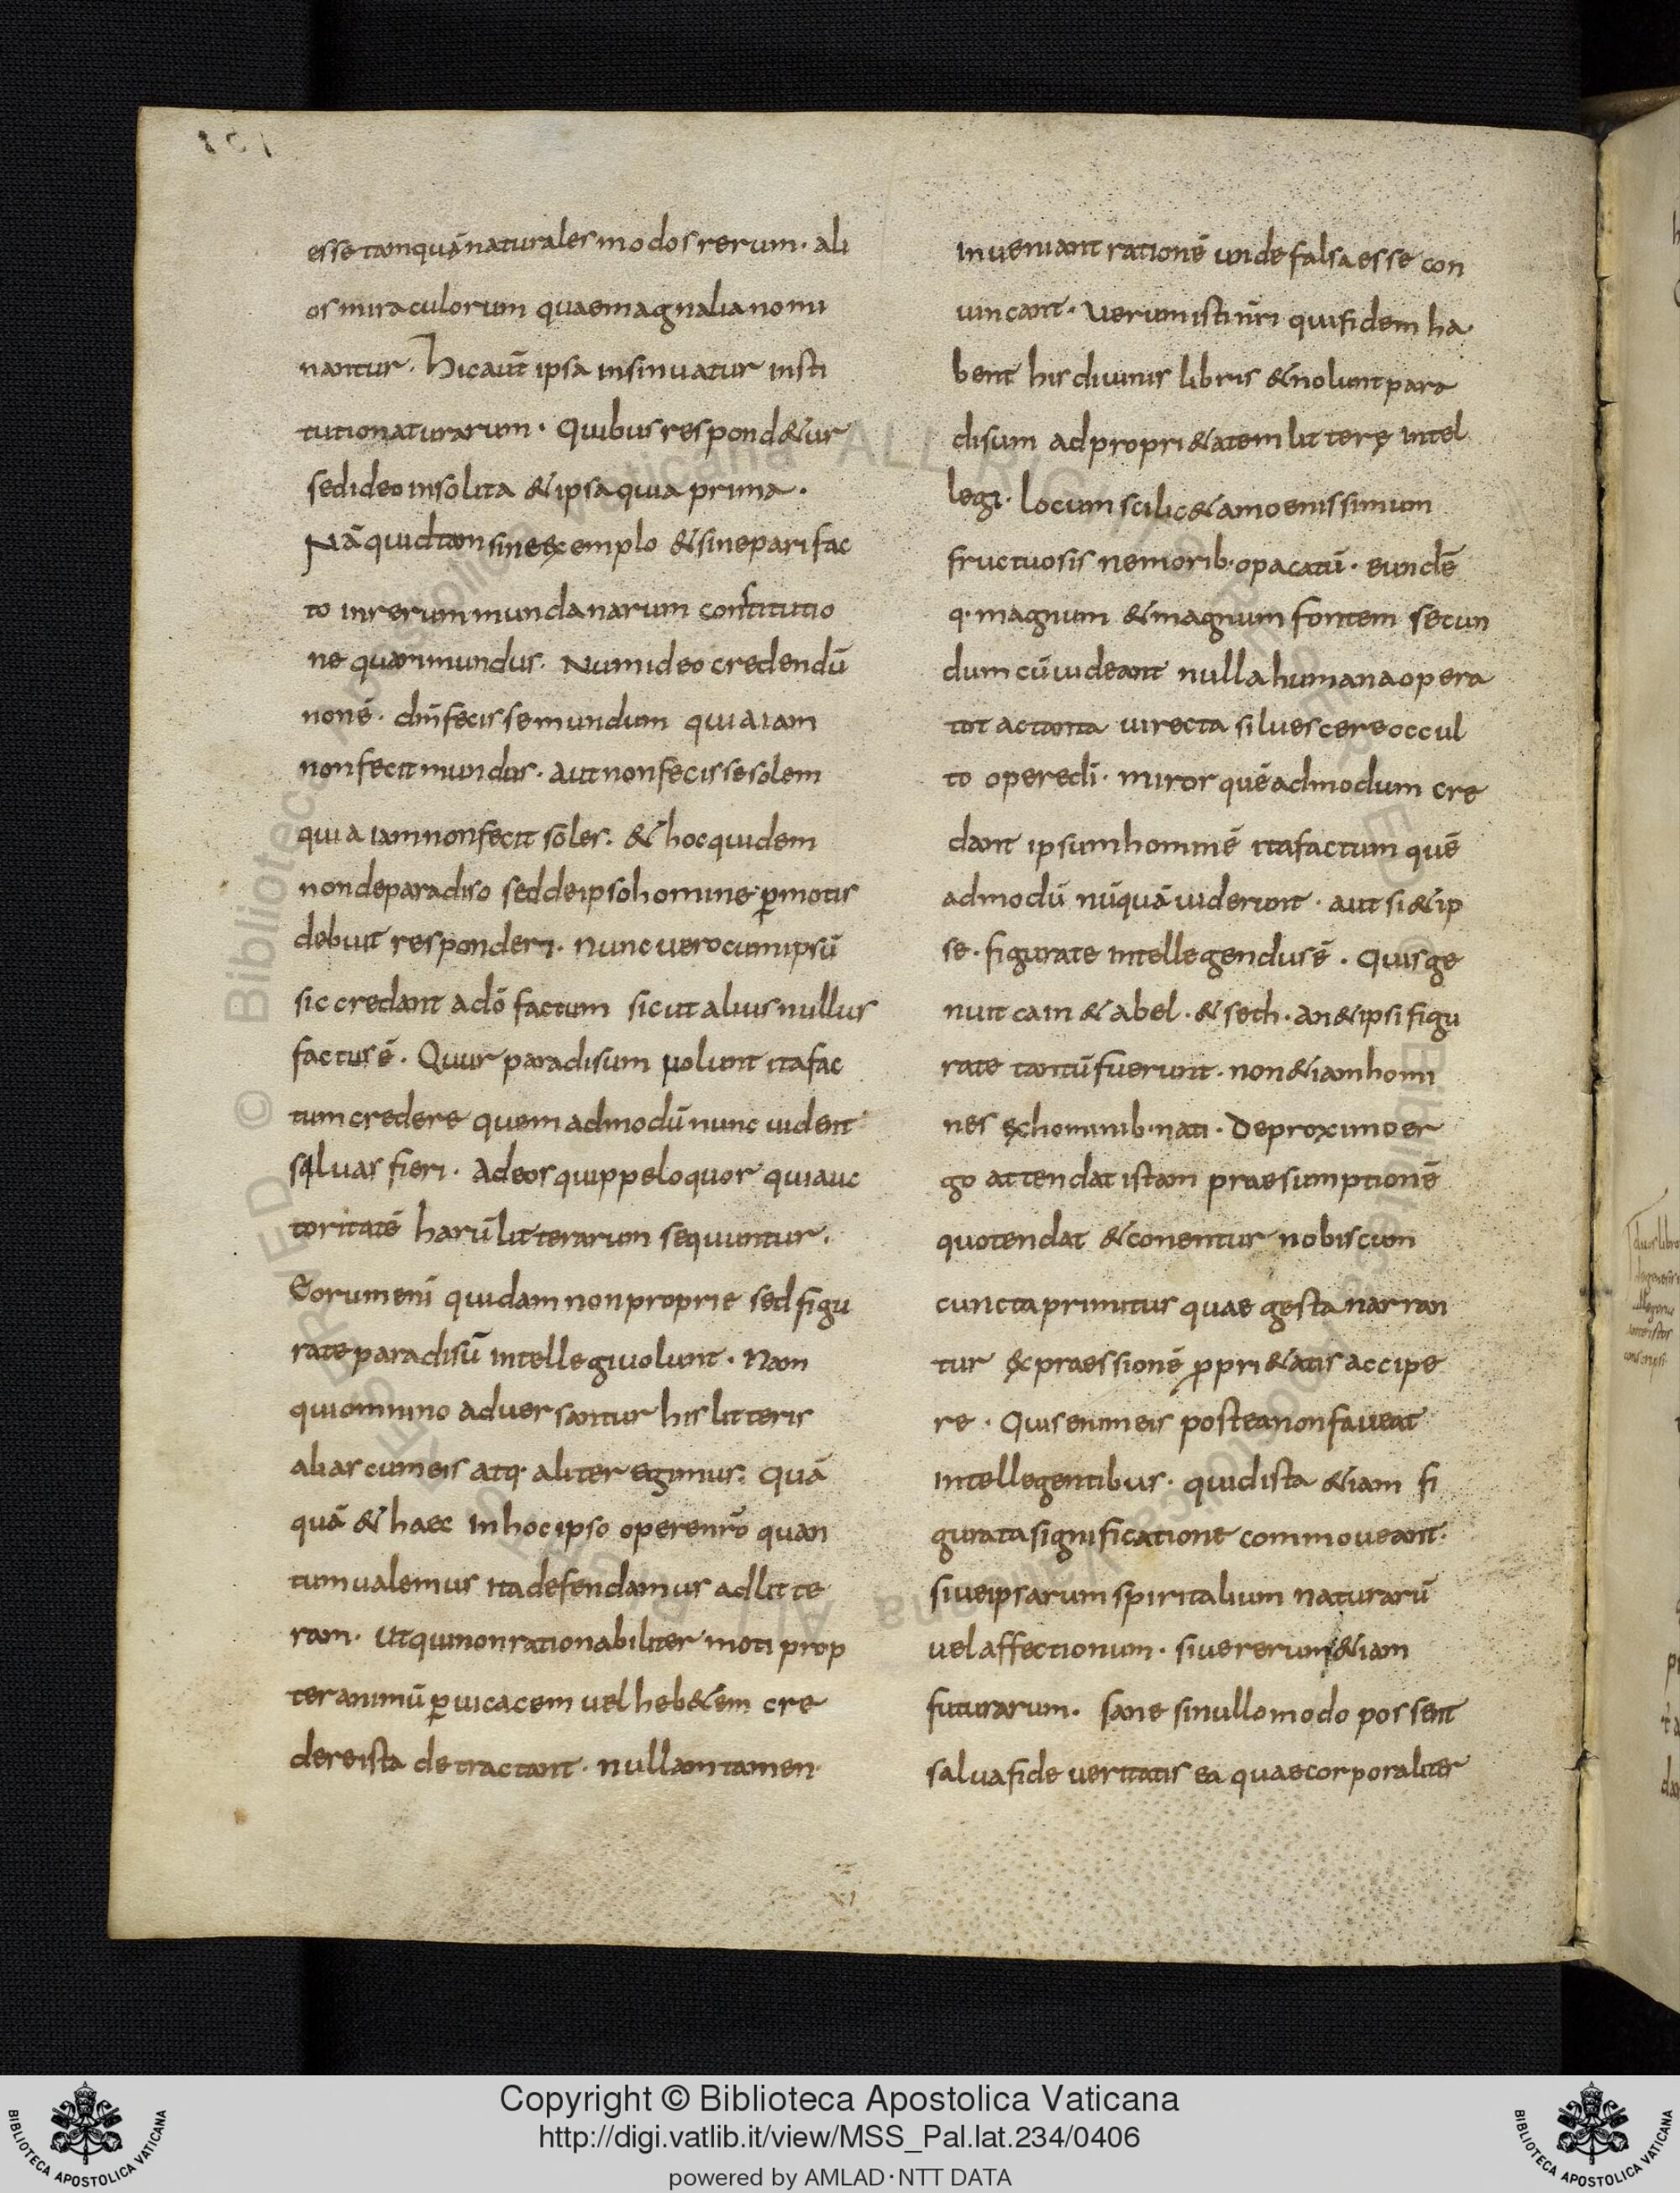 esse tamquā naturales modos rerum · ali
os miraculorum quae magnalia nomi
nantur · hic aut̄ ipsa insinuatur insti
tutio naturarum · Quibus respond&ur
sed ideo insolita & ipsa quia prima ·
Nā quid tam sine exemplo & sine pari fac
to in rerum mundanarum constitutio
ne quam mundus · Num ideo credendū
non ē · dn̄m fecisse mundum quia iam
non fecit mundus · aut non fecisse solem
quia iam non fecit soles · & hoc quidem
non de paradiso sed de ipso homine p̱motis
debuit responderi · nunc vero cum ipsū
sic credant a dō factum sicut alius nullus
factus ē · Quur paradisum nolunt ita fac
tum credere quemadmodū nunc vident
silvas fieri · Ad eos quippe loquor qui auc
toritatē harū litterarum sequuntur ·
Eorum eni quidam non proprie sed figu
rate paradisū intellegi volunt · Nam
qui omnino adversantur his litteris
alias cum eis atq· aliter egimus · Quā
quā & haec in hoc ipso opere nr̄o quan
tum valemus ita defendamus ad litte
ram · ut qui non rationabiliter moti prop
ter animū p̱vicacem vel heb&em cre
dere ista detractant · nullam tamen
inveniant rationē unde falsa esse con
vincant · Verum isti nr̄i qui fidem ha
bent his divinis libris & nolunt para
disum ad propri&atem litterę intel
legi · locum scilic& amoenissimum
fructuosis nemorib· opacatū · eundē
q· magnum & magnum fontem secun
dum cū videant nulla humana opera
tot ac tanta virecta silvescere occul
to opere dī · miror quēadmodum cre
dant ipsum hominē ita factum quē
admodū nūquā viderunt · aut si & ip
se · figurate intellegendus ē · Quis ge
nuit cain & abel · & seth · an & ipsi figu
rate tantū fuerunt · non &iam homi
nes ex hominib· nati · De proximo er
go attendat istam praesumptionē
quo tendat & conentur nobiscum
cuncta primitus quae gesta narran
tur expraessionē p̱pri&atis accipe
re · Quis enim eis postea non faveat
intellegentibus · quid ista &iam fi
gurata significatione commoveant ·
sive ipsarum spiritalium naturarū
vel affectionum · sive rerum &iam
futurarum · sane si nullo modo possent
salva fide veritatis ea quae corporaliter
© Biblioteca Apostolica Vaticana ALL RIGHTS RESERVED
Copyright © Biblioteca Apostolica Vaticana
http://digi.vatlib.it/view/MSS_Pal.lat.234/0406
powered by AMLAD·NTT DATA
BIBLIOTECA APOSTOLICA VATICANA
BIBLIOTECA APOSTOLICA VATICANA